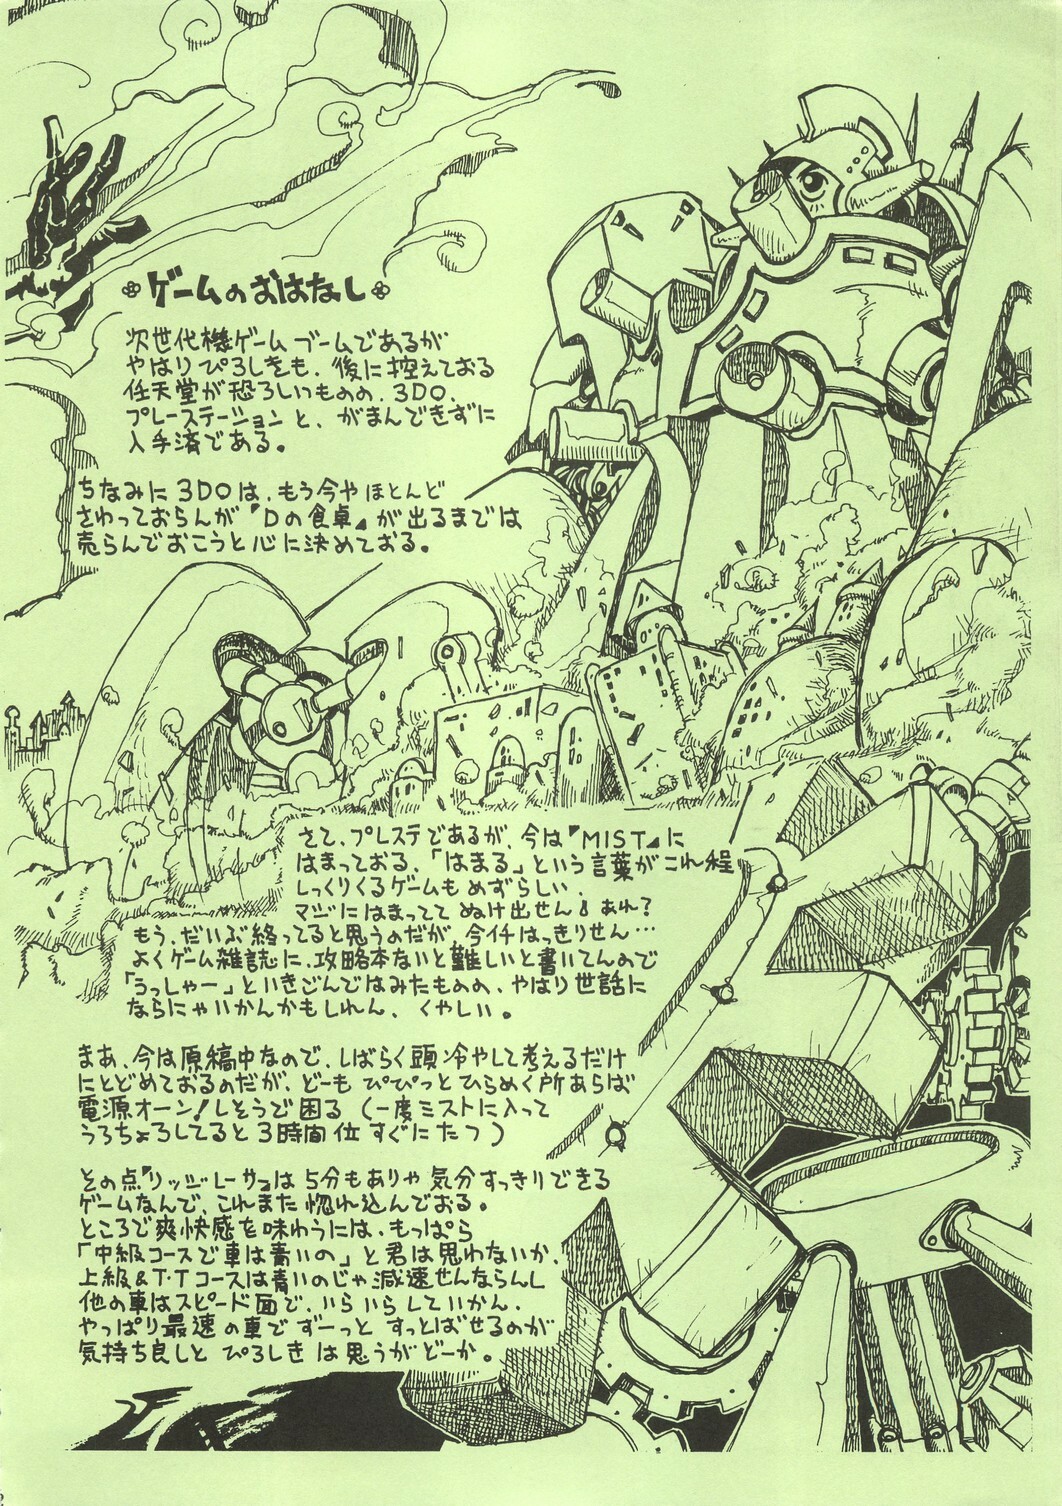 ゲームのおはなし
次世代機ゲームブームであるが
やはりぴろしきも、後に控えておる
任天堂が恐ろしいものの、3DO、
プレーステーションと、がまんできずに
入手済である。
ちなみに3DOは、もう今やほとんど
さわっておらんが『Dの食卓』が出るまでは
売らんでおこうと心に決めておる。
さて、プレステであるが、今は『MIST』に
はまっておる。「はまる」という言葉がこれ程
しっくりくるゲームもめずらしい。
マジにはまってて ぬけ出せん!あれ?
もう、だいぶ終ってると思うのだが、今イチはっきりせん…
よくゲーム雑誌に、攻略本ないと難しいと書いてんので
「うっしゃー」といきごんではみたものの、やはり世話に
ならにゃいかんかもしれん、くやしい。
まあ、今は原稿中なので、しばらく頭冷やして考えるだけ
にとどめておるのだが、どーも ぴぴっとひらめく所あらば
電源オーン!しそうで困る(一度ミストに入って
うろちょろしてると3時間位すぐにたつ)
その点『リッジレーサー』は5分もありゃ気分すっきりできる
ゲームなんで、これまた惚れ込んでおる。
ところで爽快感を味わうには、もっぱら
「中級コースで車は青いの」と君は思わないか、
上級&T・Tコースは青いのじゃ減速せんならんし
他の車はスピード面で、いらいらしていかん、
やっぱり最速の車でずーっと すっとばせるのが
気持ち良しと ぴろしきは思うがどーか。